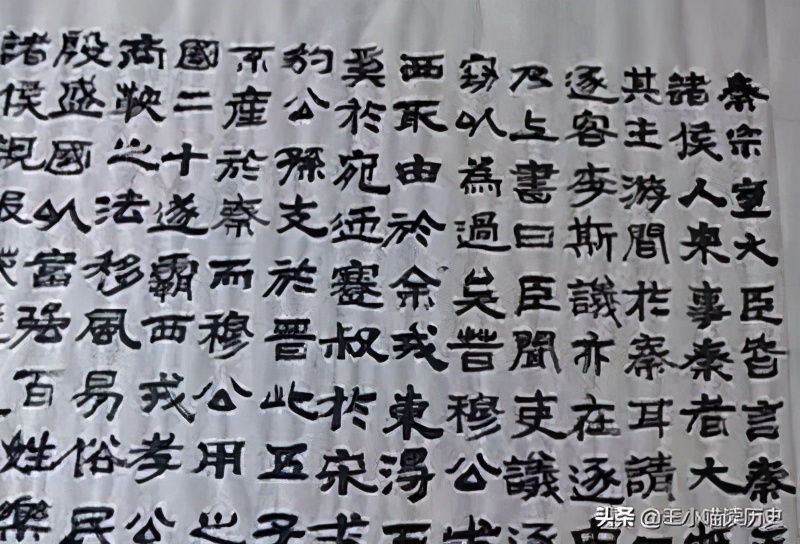 秦宗室大臣皆言秦
諸侯人來事秦者大
其主游間於秦耳請一
逐客李斯議亦在逐
乃上書曰臣聞吏議逐
竊以為過矣昔穆公求
西取由於余戎東淂百
奚於宛迊蹇叔於宋求
豹公孫支於晉此五子
不產於秦而穆公用之
國二十遂霸西戎孝公
商鞅之法移風易俗民
殷盛國以富強百姓樂
諸侯
头条 @王小喵读历史